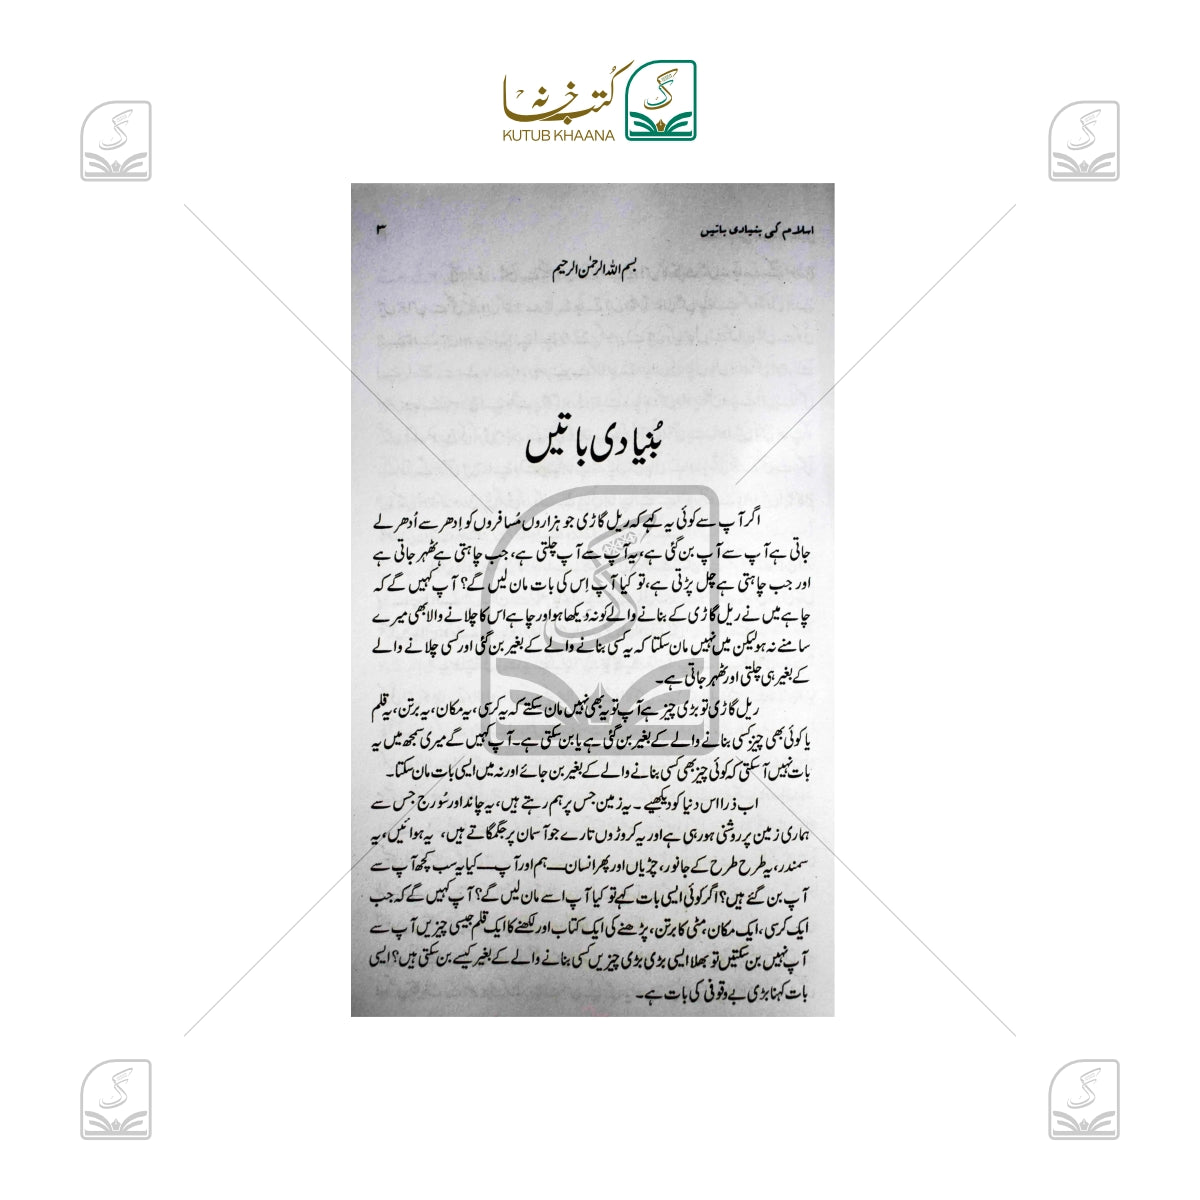 کُتب خانہ
KUTUB KHAANA
اسلام کی بنیادی باتیں ۳
بسم اللہ الرحمٰن الرحیم
بُنیادی باتیں
اگر آپ سے کوئی یہ کہے کہ ریل گاڑی جو ہزاروں مُسافروں کو اِدھر سے اُدھر لے
جاتی ہے آپ سے آپ بن گئی ہے، یہ آپ سے آپ چلتی ہے، جب چاہتی ہے ٹھہر جاتی ہے
اور جب چاہتی ہے چل پڑتی ہے، تو کیا آپ اِس کی بات مان لیں گے؟ آپ کہیں گے کہ
چاہے میں نے ریل گاڑی کے بنانے والے کو نہ دیکھا ہو اور چاہے اس کا چلانے والا بھی میرے
سامنے نہ ہو لیکن میں نہیں مان سکتا کہ یہ کسی بنانے والے کے بغیر بن گئی اور کسی چلانے والے
کے بغیر ہی چلتی اور ٹھہر جاتی ہے۔
ریل گاڑی تو بڑی چیز ہے آپ تو یہ بھی نہیں مان سکتے کہ یہ کرسی، یہ مکان، یہ برتن، یہ قلم
یا کوئی بھی چیز کسی بنانے والے کے بغیر بن گئی ہے یا بن سکتی ہے۔ آپ کہیں گے میری سمجھ میں یہ
بات نہیں آ سکتی کہ کوئی چیز بھی کسی بنانے والے کے بغیر بن جائے اور نہ میں ایسی بات مان سکتا۔
اب ذرا اس دنیا کو دیکھیے۔ یہ زمین جس پر ہم رہتے ہیں، یہ چاند اور سُورج جس سے
ہماری زمین پر روشنی ہو رہی ہے اور یہ کروڑوں تارے جو آسمان پر جگمگاتے ہیں، یہ ہوائیں، یہ
سمندر، یہ طرح طرح کے جانور، چڑیاں اور پھر انسان — ہم اور آپ — کیا یہ سب کچھ آپ سے
آپ بن گئے ہیں؟ اگر کوئی ایسی بات کہے تو کیا آپ اسے مان لیں گے؟ آپ کہیں گے کہ جب
ایک کرسی، ایک مکان، مٹی کا برتن، پڑھنے کی ایک کتاب اور لکھنے کا ایک قلم جیسی چیزیں آپ سے
آپ نہیں بن سکتیں تو بھلا ایسی بڑی بڑی چیزیں کسی بنانے والے کے بغیر کیسے بن سکتی ہیں؟ ایسی
بات کہنا بڑی بے وقوفی کی بات ہے۔